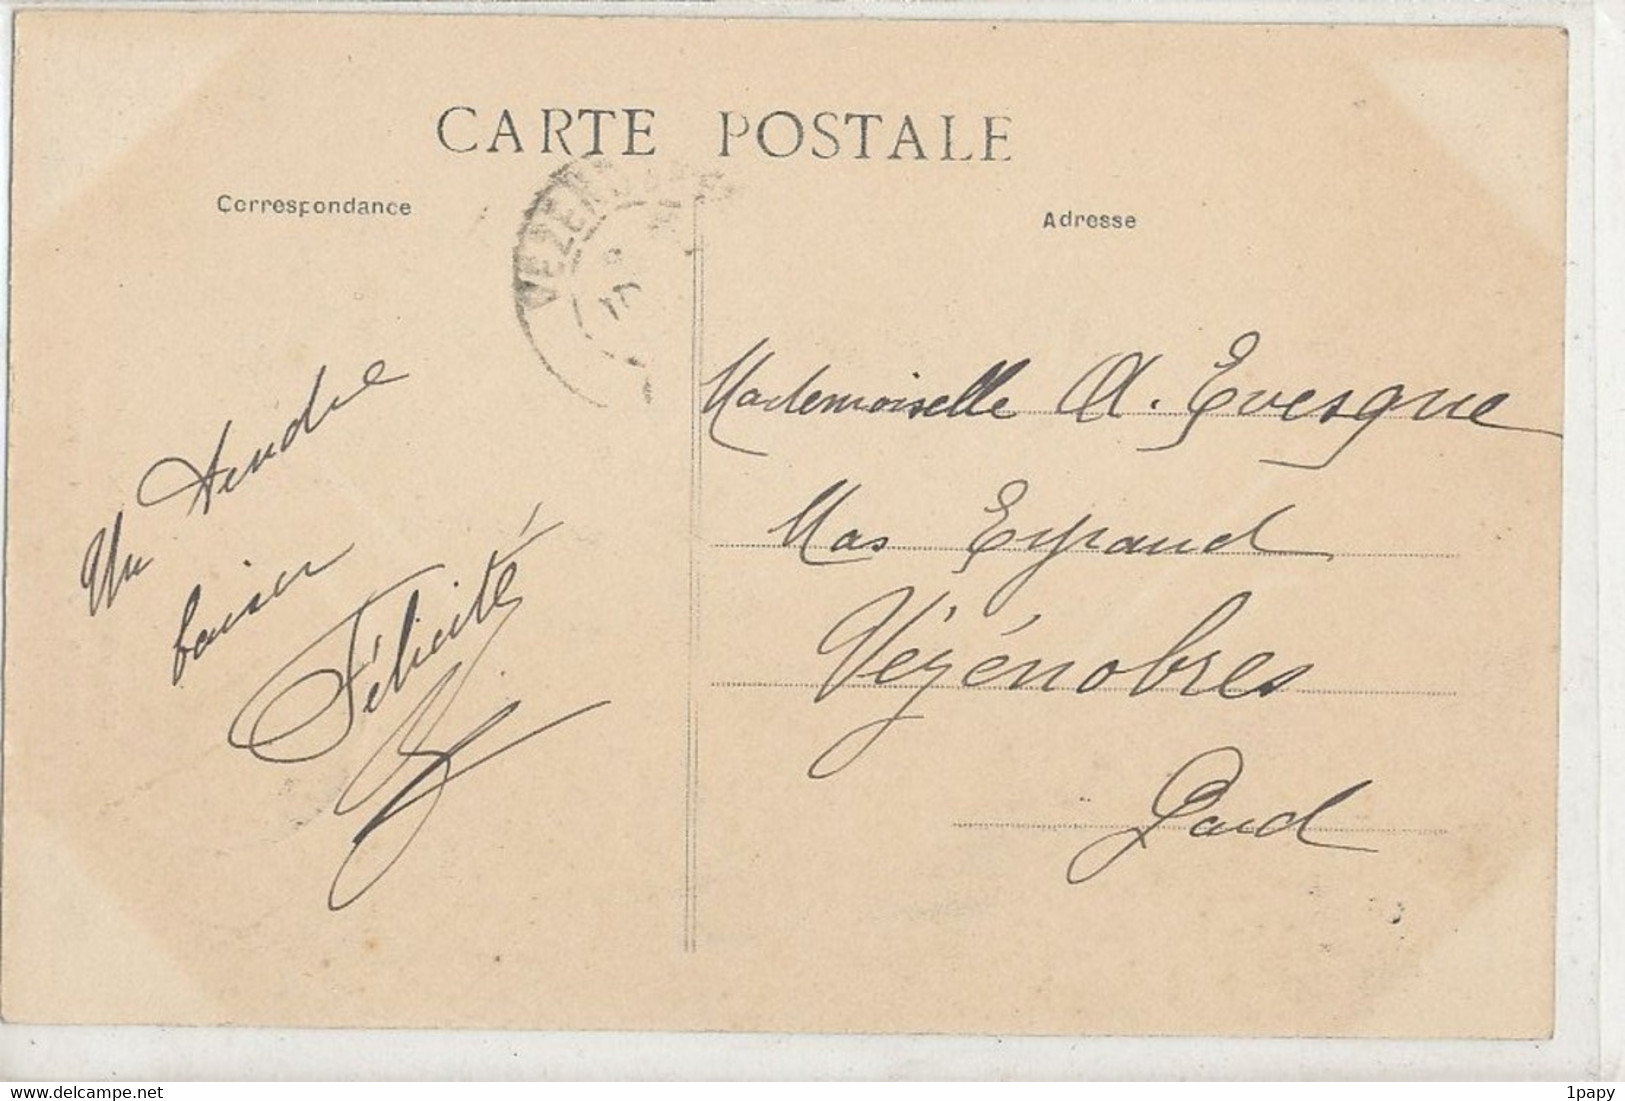 CARTE POSTALE
Correspondance
Adresse
VEZENO
Un tendre
baiser
Félicité
Mademoiselle A. Evesgue
Mas Espaud
Vézénobres
Gard
1papy